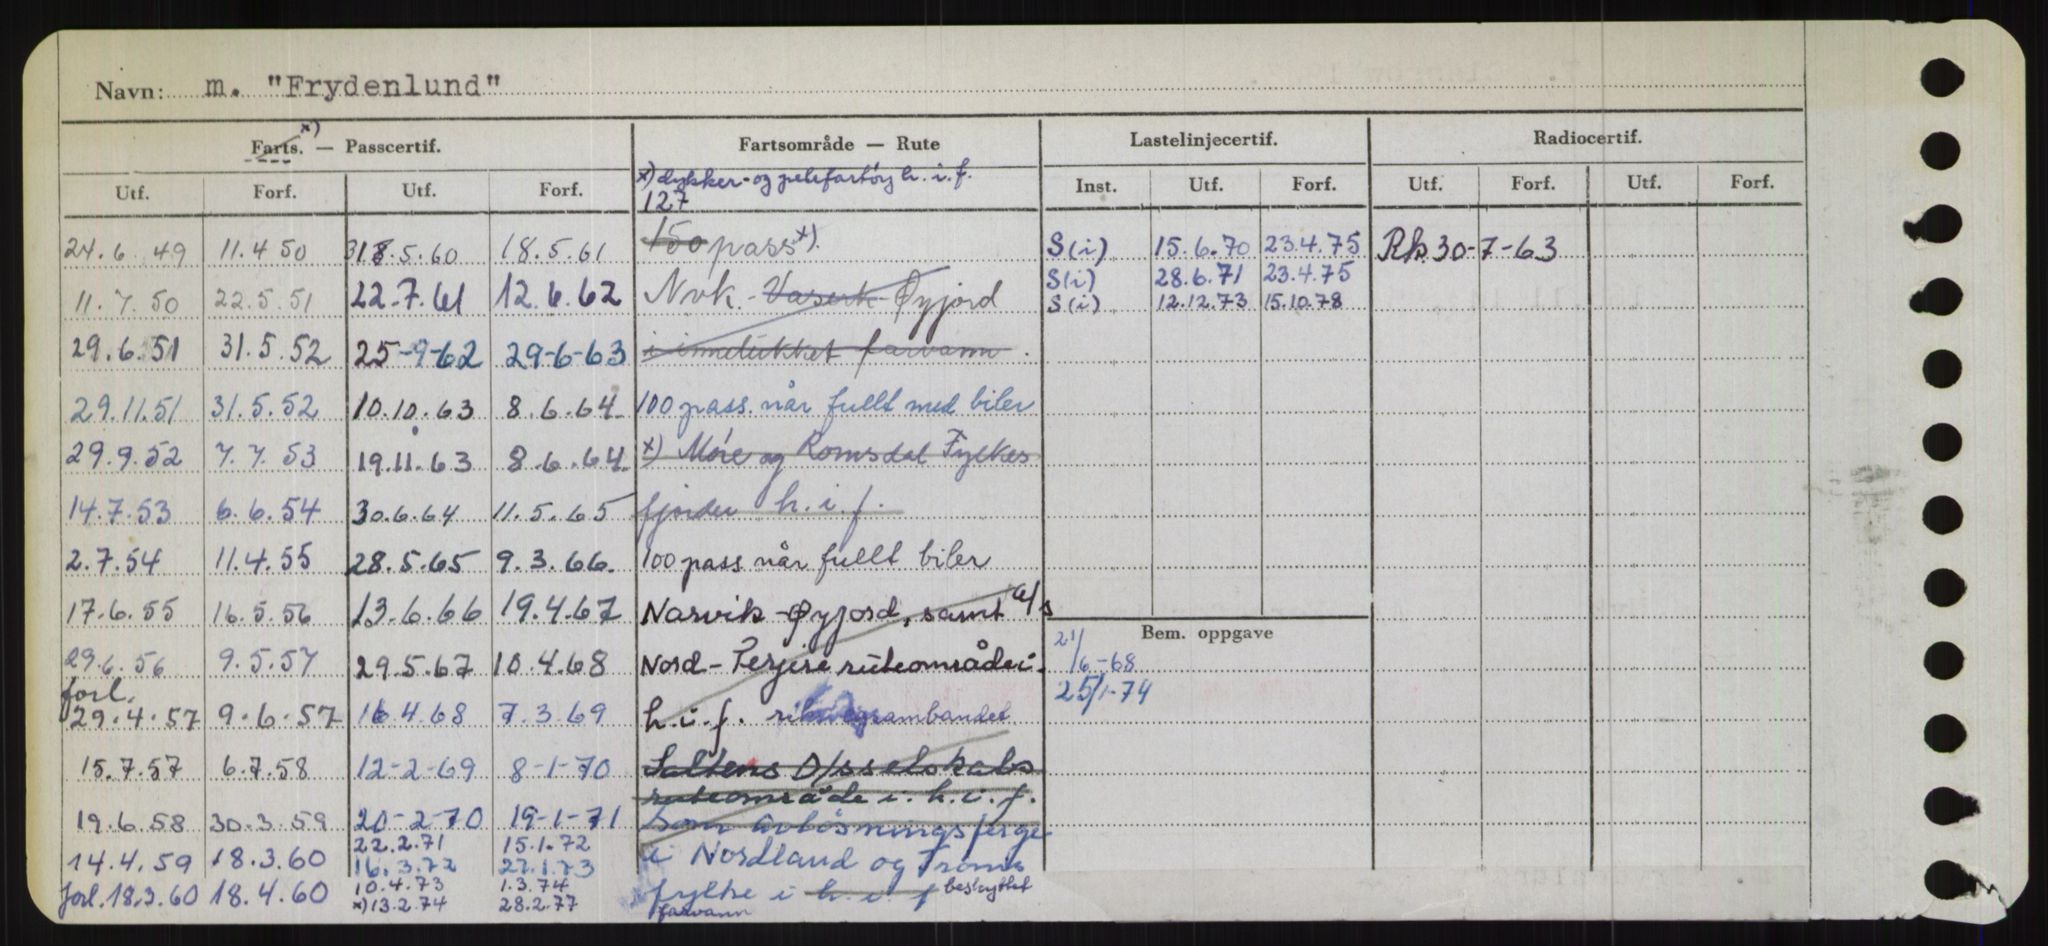 Navn: m. "Frydenlund"
Farts. x) — Passcertif. Fartsområde — Rute Lastelinjecertif. Radiocertif.
Utf. Forf. Utf. Forf. x) dykker- og h. i. f. Inst. Utf. Forf. Utf. Forf. Utf. Forf.
127
24.6.49 11.4.50 18.5.60 18.5.61 150 pass x). S(i) 15.6.70 23.4.75 Rk 30-7-63
S(i) 28.6.71 23.4.75
11.7.50 22.5.51 22.7.61 12.6.62 Nvk. - - Øyjord S(i) 12.12.73 15.10.78
29.6.51 31.5.52 25-9-62 29-6-63 i innelukket farvann.
29.11.51 31.5.52 10.10.63 8.6.64 100 pass. når fullt med biler
29.9.52 7.7.53 19.11.63 8.6.64 x) Møre og Romsdal Fylkes
14.7.53 6.6.54 30.6.64 11.5.65 fjorder h.i.f.
2.7.54 11.4.55 28.5.65 9.3.66. 100 pass når fullt biler
17.6.55 16.5.56 13.6.66 19.4.67 Narvik - Øyjord, samt a/s
Bem. oppgave
29.6.56 9.5.57 29.5.67 10.4.68 Nord-Ferjers ruteområde i 21/6-68
forl. 25/1-74
29.4.57 9.6.57 16.4.68 7.3.69 h.i.f. riksvegsambandet
15.7.57 6.7.58 12-2-69 8-1-70 Saltens D/sselskabs
ruteområde i h.i.f.
19.6.58 30.3.59 20-2-70 19-1-71 Som avløsningsferge
22.2.71 15.1.72
14.4.59 18.3.60 16.3.72 27.1.73 i Nordland og Troms
10.4.73 1.3.74
forl. 18.3.60 18.4.60 x) 13.2.74 28.2.77 fylke i h.i.f beskyttet
farvann